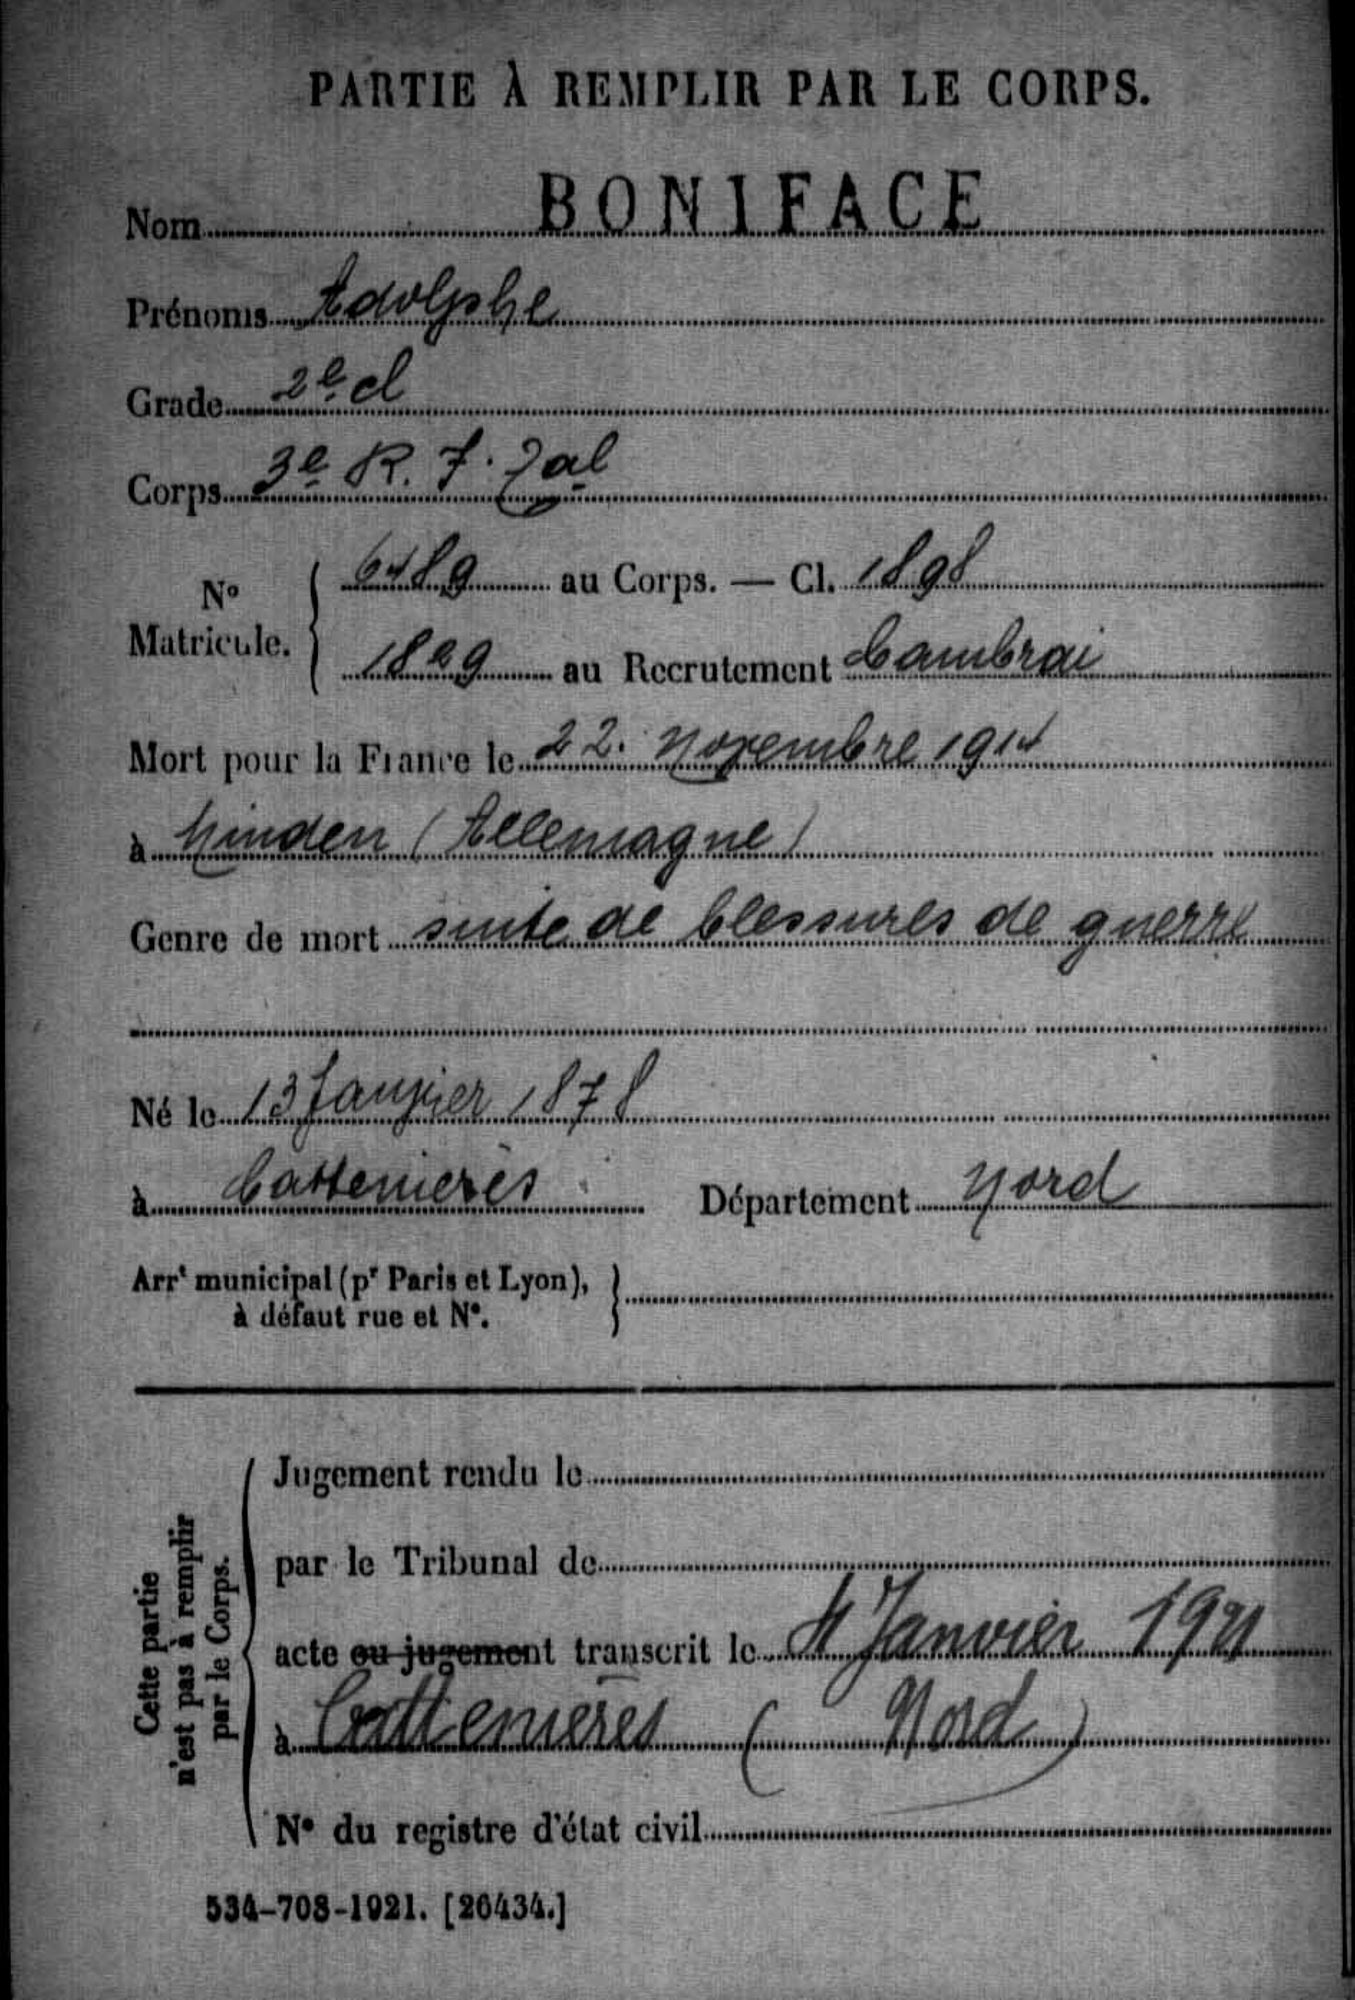 PARTIE À REMPLIR PAR LE CORPS.
Nom BONIFACE
Prénoms Adolphe
Grade 2e cl
Corps 3e R. I. Tal
No Matricule. 6489 au Corps. — Cl. 1898
1829 au Recrutement Cambrai
Mort pour la France le 22. Novembre 1914
à Minden (Allemagne)
Genre de mort suite de blessures de guerre
Né le 13 Janvier 1878
à Cattenières Département Nord
Arrt municipal (pr Paris et Lyon),
à défaut rue et No.
Cette partie
n'est pas à remplir
par le Corps.
Jugement rendu le
par le Tribunal de
acte ou jugement transcrit le 4 Janvier 1921
à Cattenières (Nord)
No du registre d'état civil
534-708-1921. [26434.]